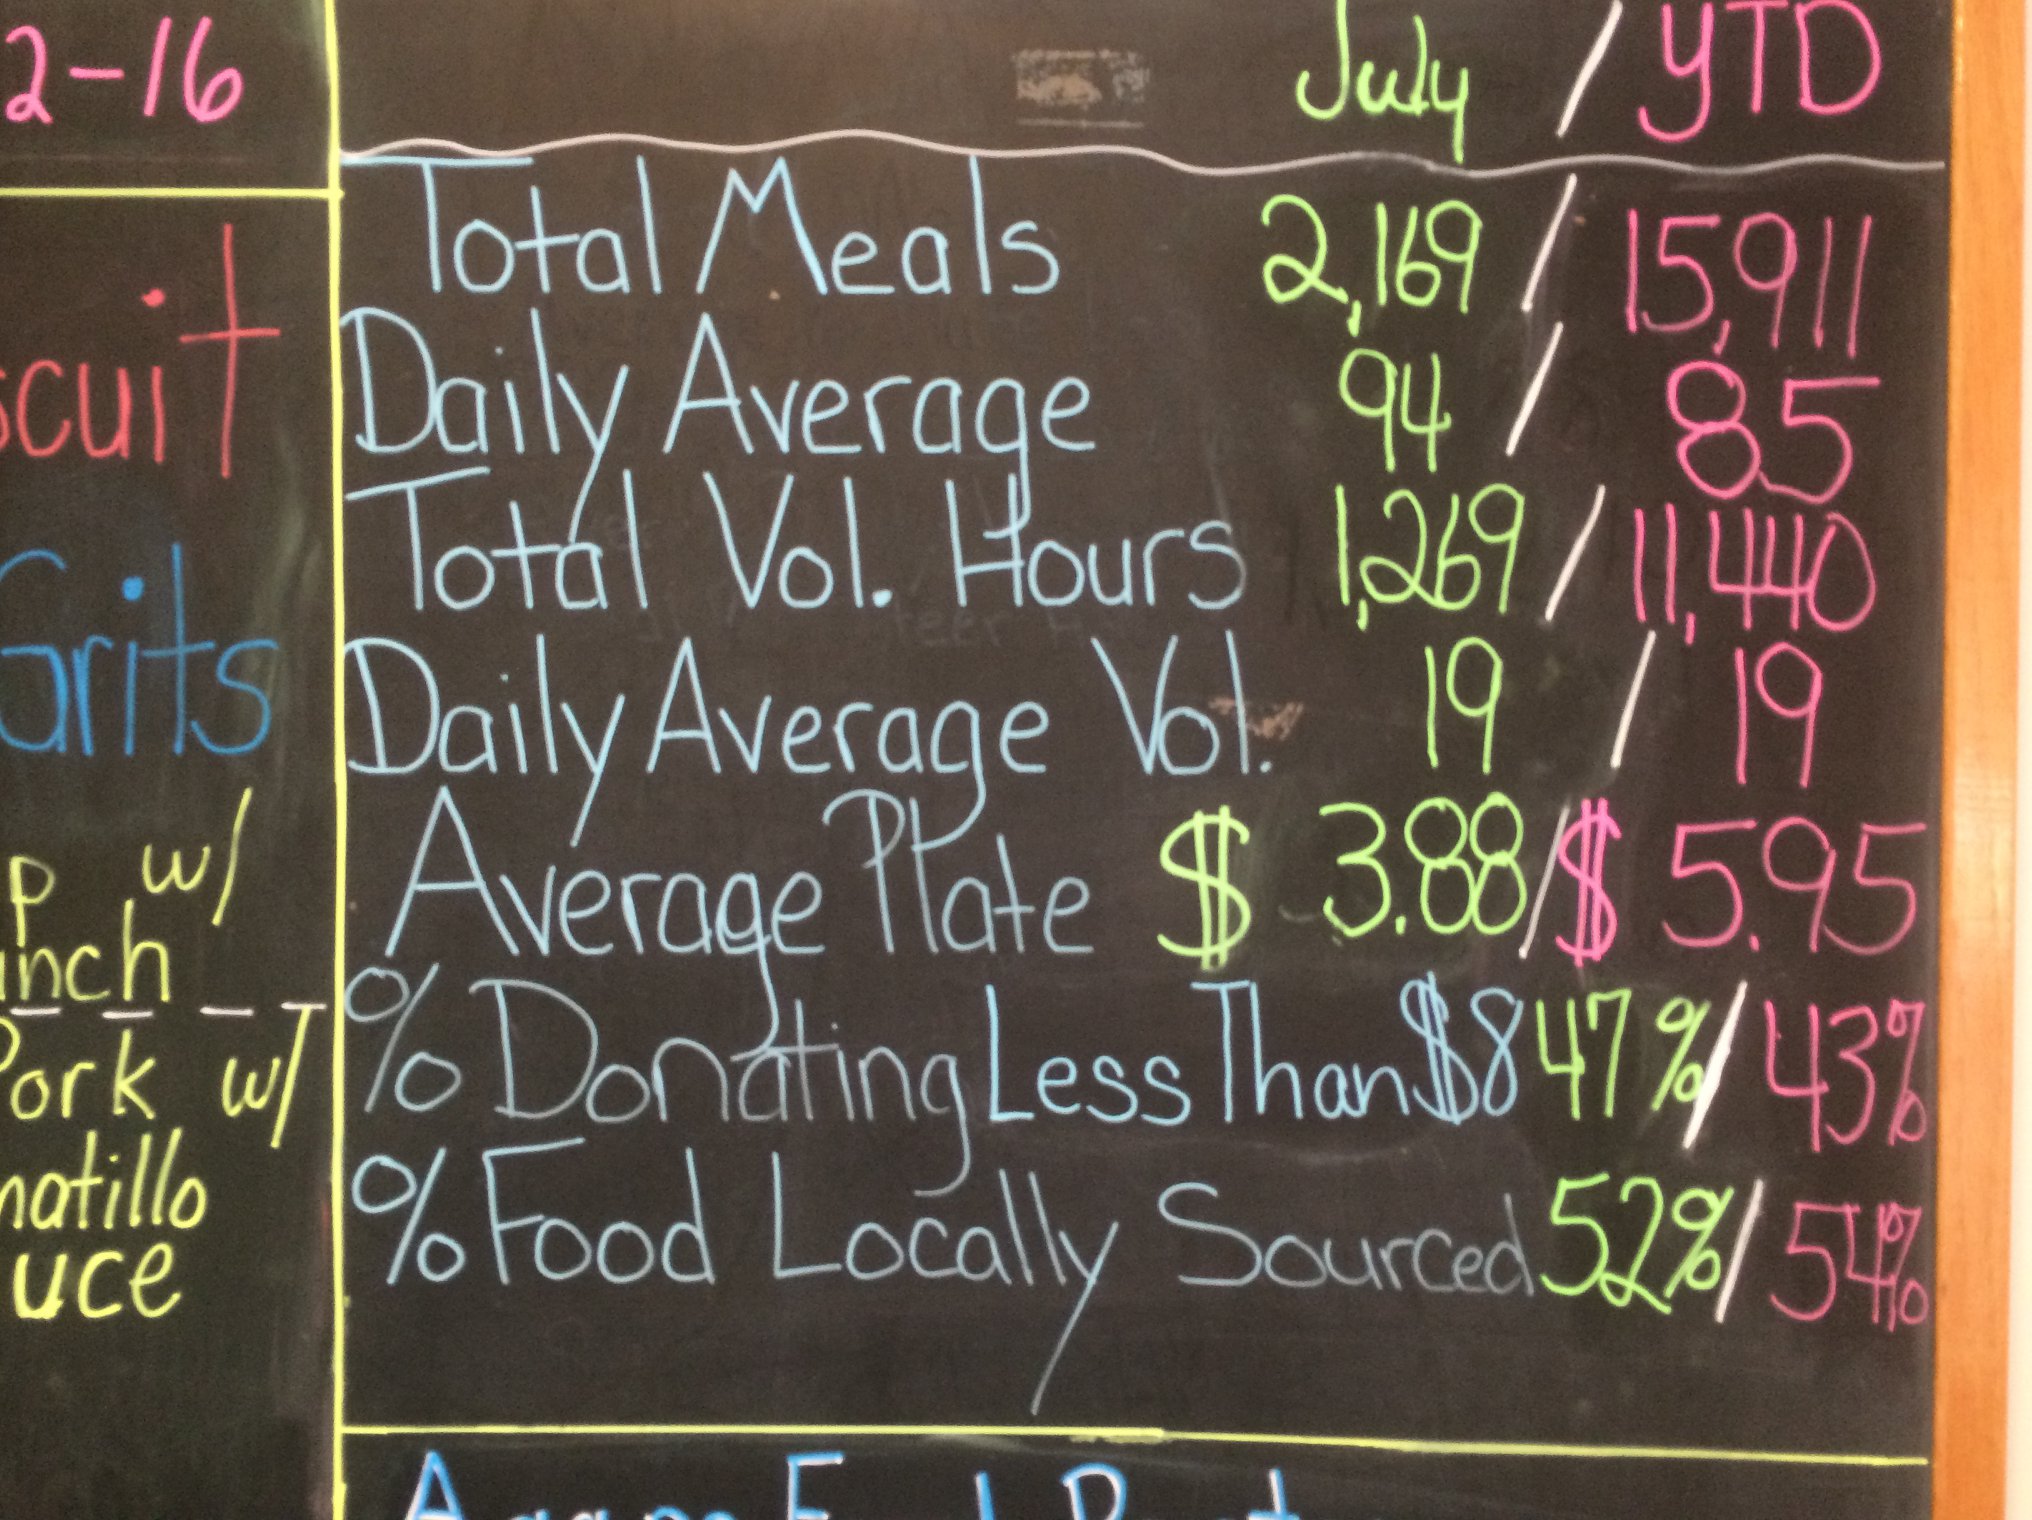 2-16
scuit
Grits
p w/
unch
Pork w/
matillo
uce
July / YTD
Total Meals 2,169 / 15,911
Daily Average 94 / 85
Total Vol. Hours 1,269 / 11,440
Daily Average Vol. 19 / 19
Average Plate $ 3.88 / $ 5.95
% Donating Less Than $8 47% / 43%
% Food Locally Sourced 52% / 54%